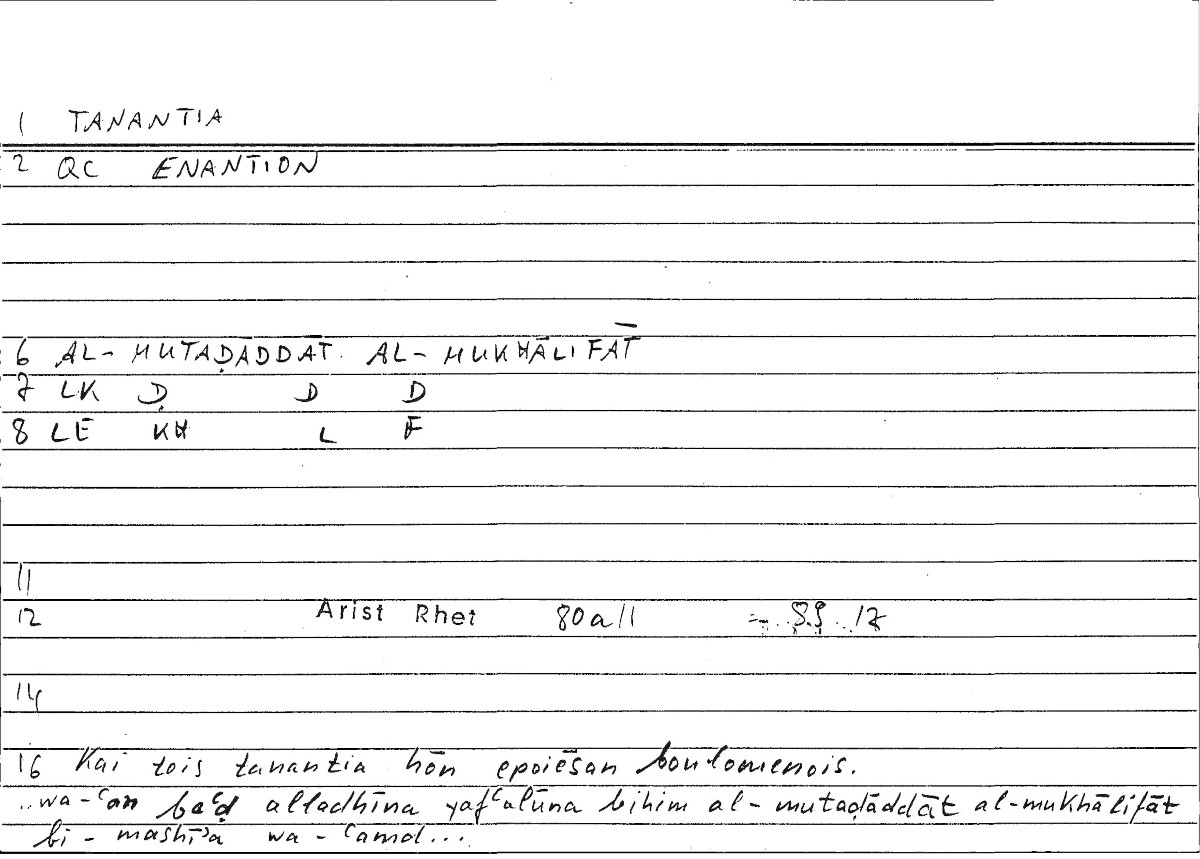 1 TANANTIA
2 QC ENANTION
6 AL-MUTAḌADDĀT AL-MUKHĀLIFĀT
7 LK Ḍ D D
8 LE KH L F
11
12 Arist Rhet 80a11 = 89 17
14
16 Kai tois tanantia hōn epoiēsan boulomenois.
..wa-ʿan baʿḍ alladhīna yafʿalūna bihim al-mutaḍāddāt al-mukhālifāt
bi-mashīʾa wa-ʿamd...